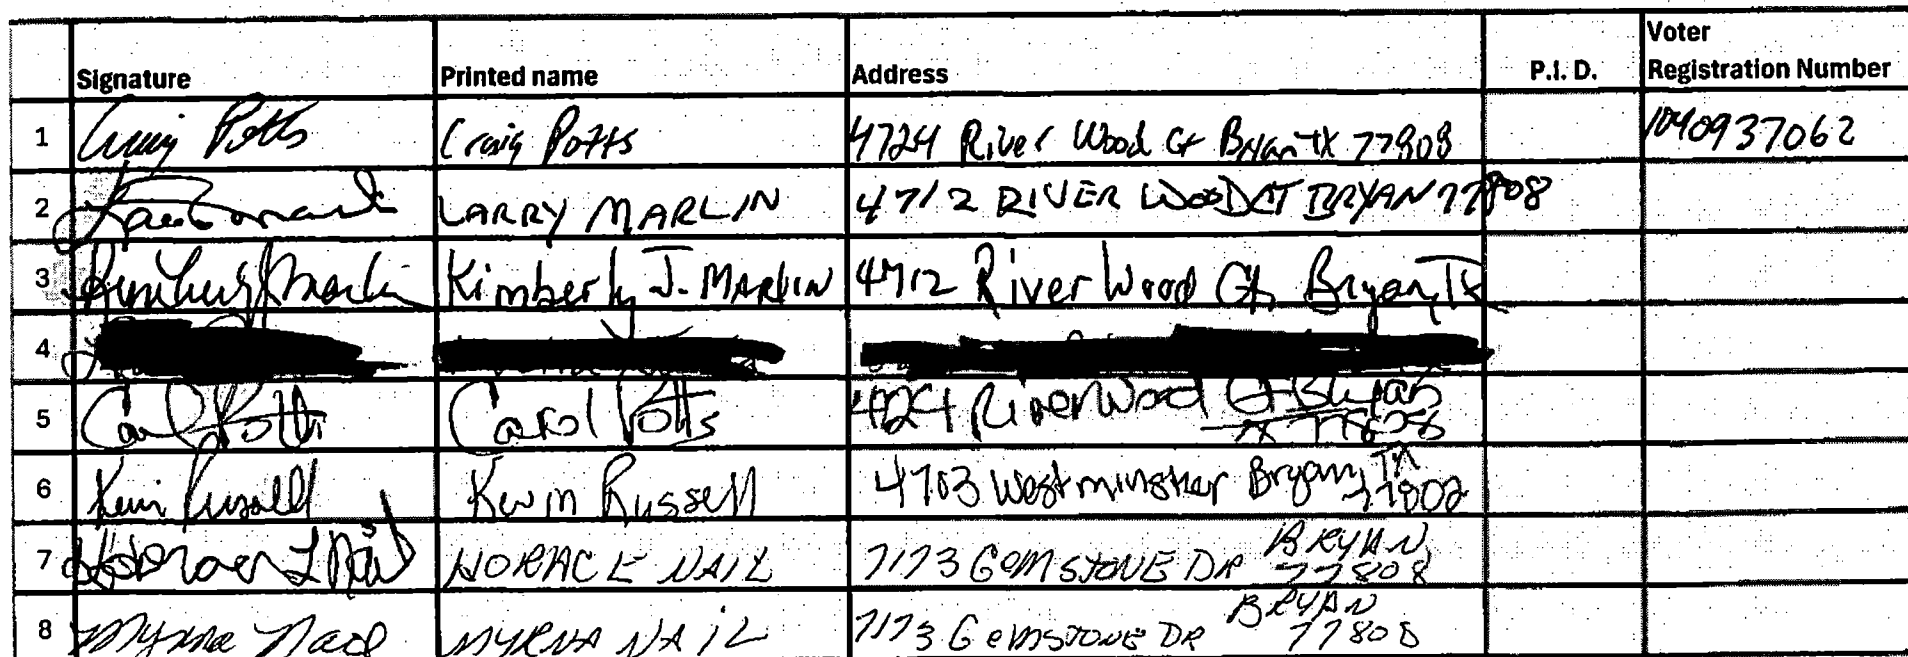 Signature Printed name Address P.I. D. Voter Registration Number
1 Craig Potts Craig Potts 4724 River Wood Ct Bryan TX 77808 1040937062
2 LARRY MARLIN 4712 RIVER WOOD CT BRYAN 77808
3 Kimberly J. MARLIN 4712 River Wood Ct, Bryan, TX
4
5 Carol Potts Carol Potts RiverWood Ct Bryan
TX 77808
6 Kevin Russell Kevin Russell 4703 Westminster Bryan, TX
77802
7 HORACE NAIL 7173 GEMSTONE DR BRYAN
77808
8 Myrna Nail MYRNA NAIL 7173 GEMSTONE DR BRYAN
77808